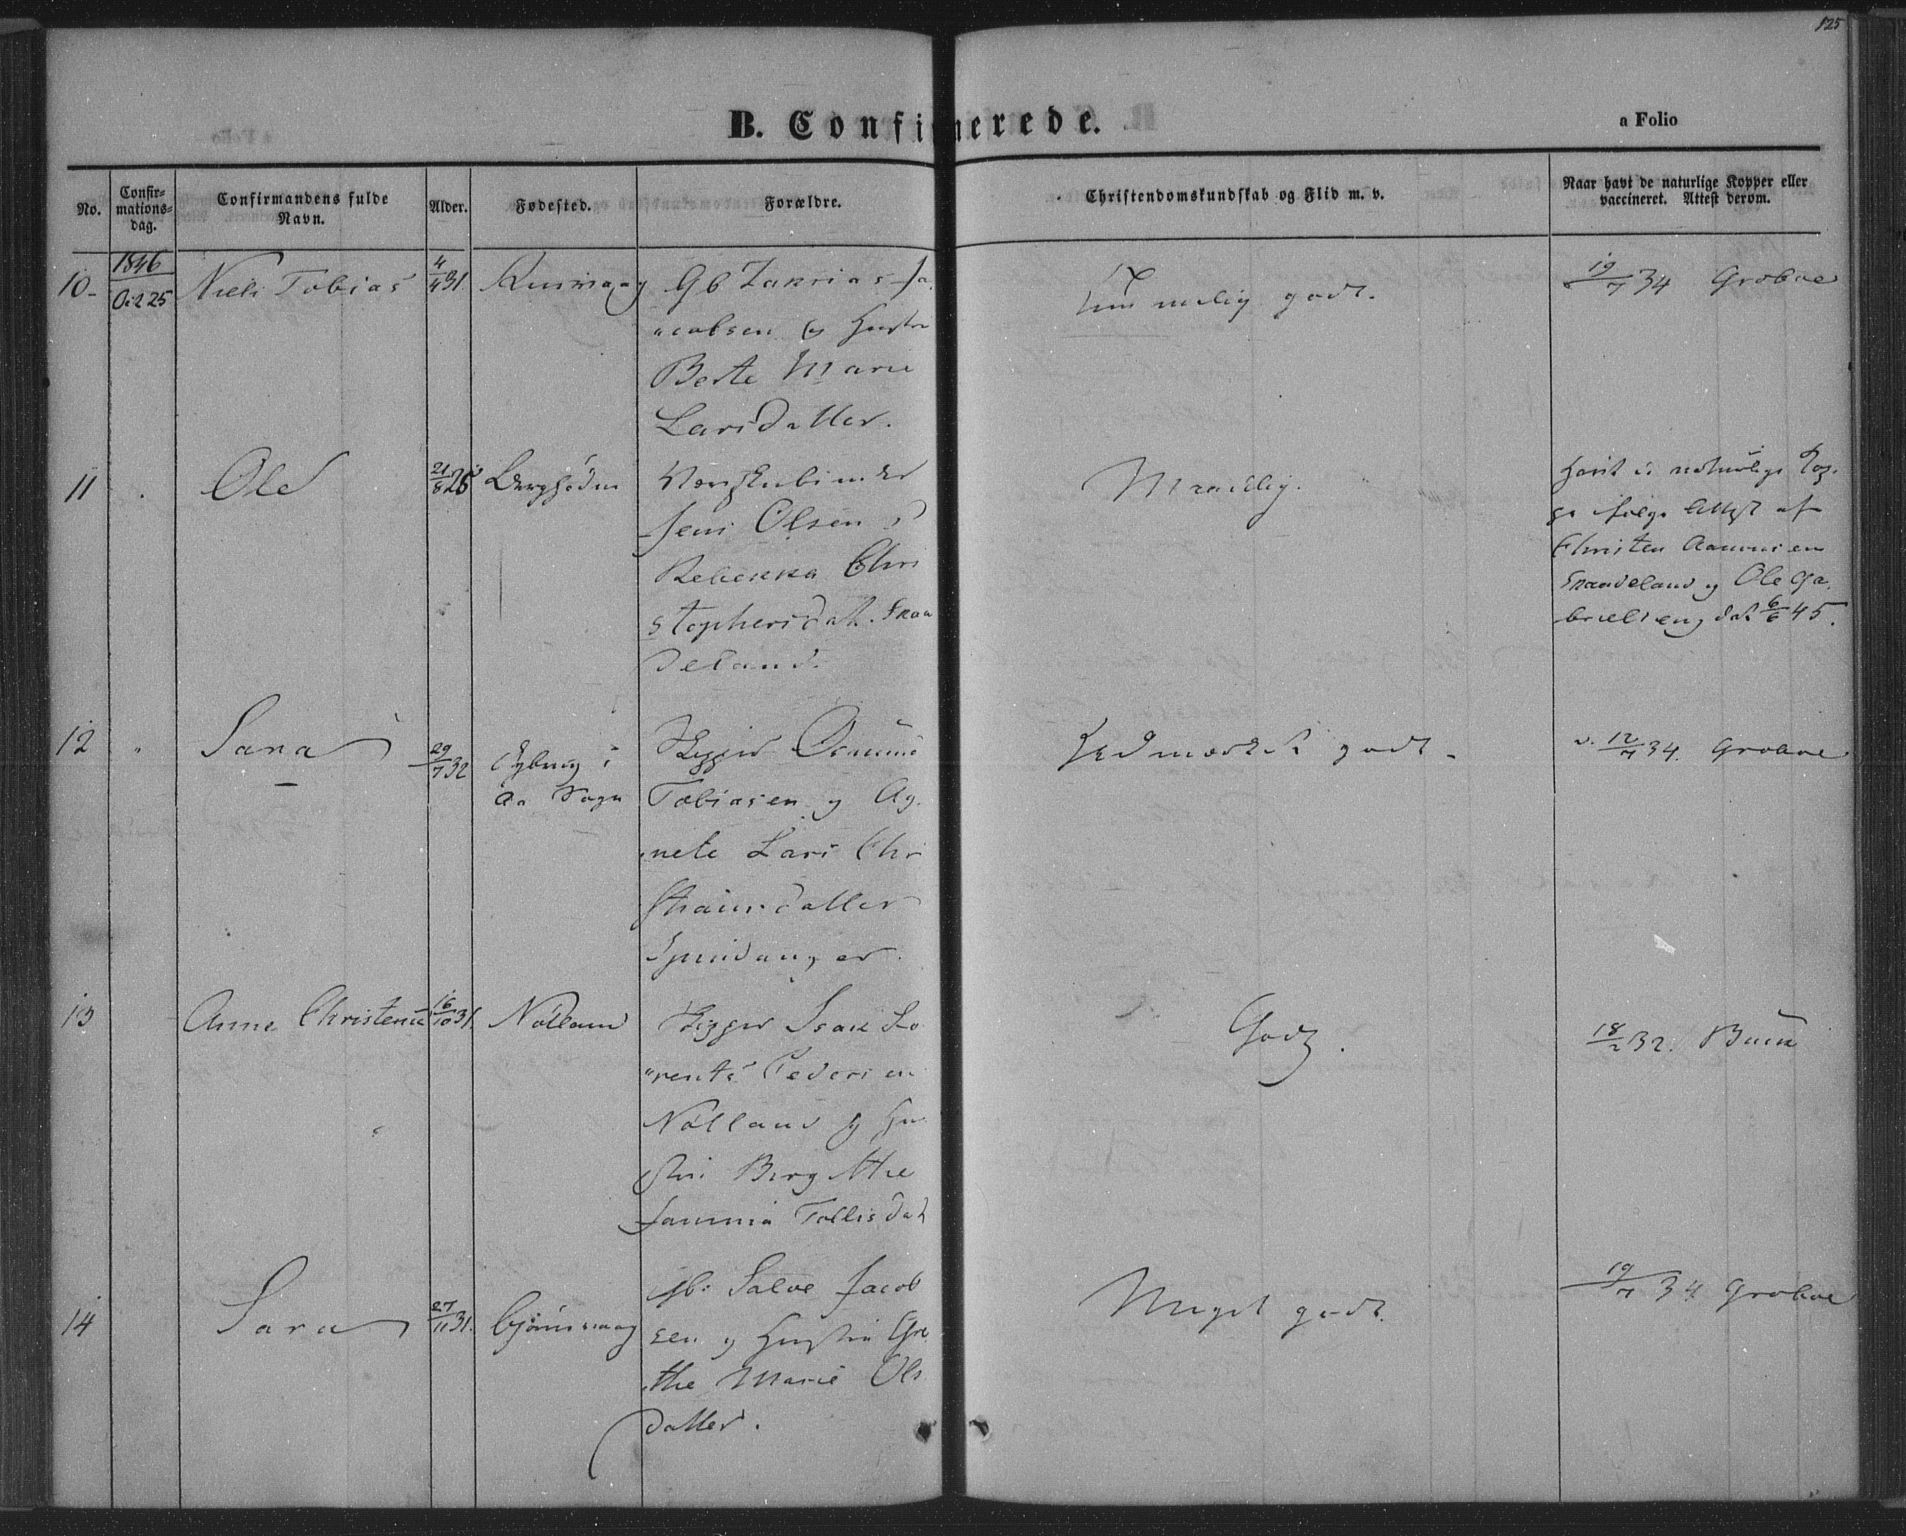 125
B. Confirmerede.
a Folio
No.
Confir-
mations-
dag.
Confirmandens fulde
Navn.
Alder.
Fødested.
Forældre.
Christendomskundskab og Flid m. v.
Naar havt de naturlige Kopper eller
vaccineret. Attest derom.
10 1846 Oct 25 Niels Tobias 4/4 31 Gb Zakrias Ja
cobsen og Hustru
Berte Marie
Larsdatter.
Temmelig godt.
19/7 34 Groboe
11 Ole 21/8 28
Jens Olsen
Rebekka Chri
stophersdat. Fraa
deland.
Maadelig.
Havt de naturlige Kop-
pe ifølge Attest af
Christen Aanonsen
Fraadeland og Ole Ga
brielsen, dat 6/6 45.
12 Sara 29/7 32 i
Aa Sogn
Skipper Osmund
Tobiasen og Ag
nete Lars Chri
stiansdatter
Spindanger.
Udmærket godt
v. 12/7 34. Groboe
13 Anne Christense 16/10 31. Nölland Skipper Isak Lo
rents Pedersen
Nölland og Hu
stru Birgitthe
Jammia Tollisdat
Godt.
18/2 32. Buck
14 Sara 27/11 31. Gb: Salve Jacob
sen og Hustru Gre
the Marie Ols
datter.
Meget godt.
19/7 34 Groboe